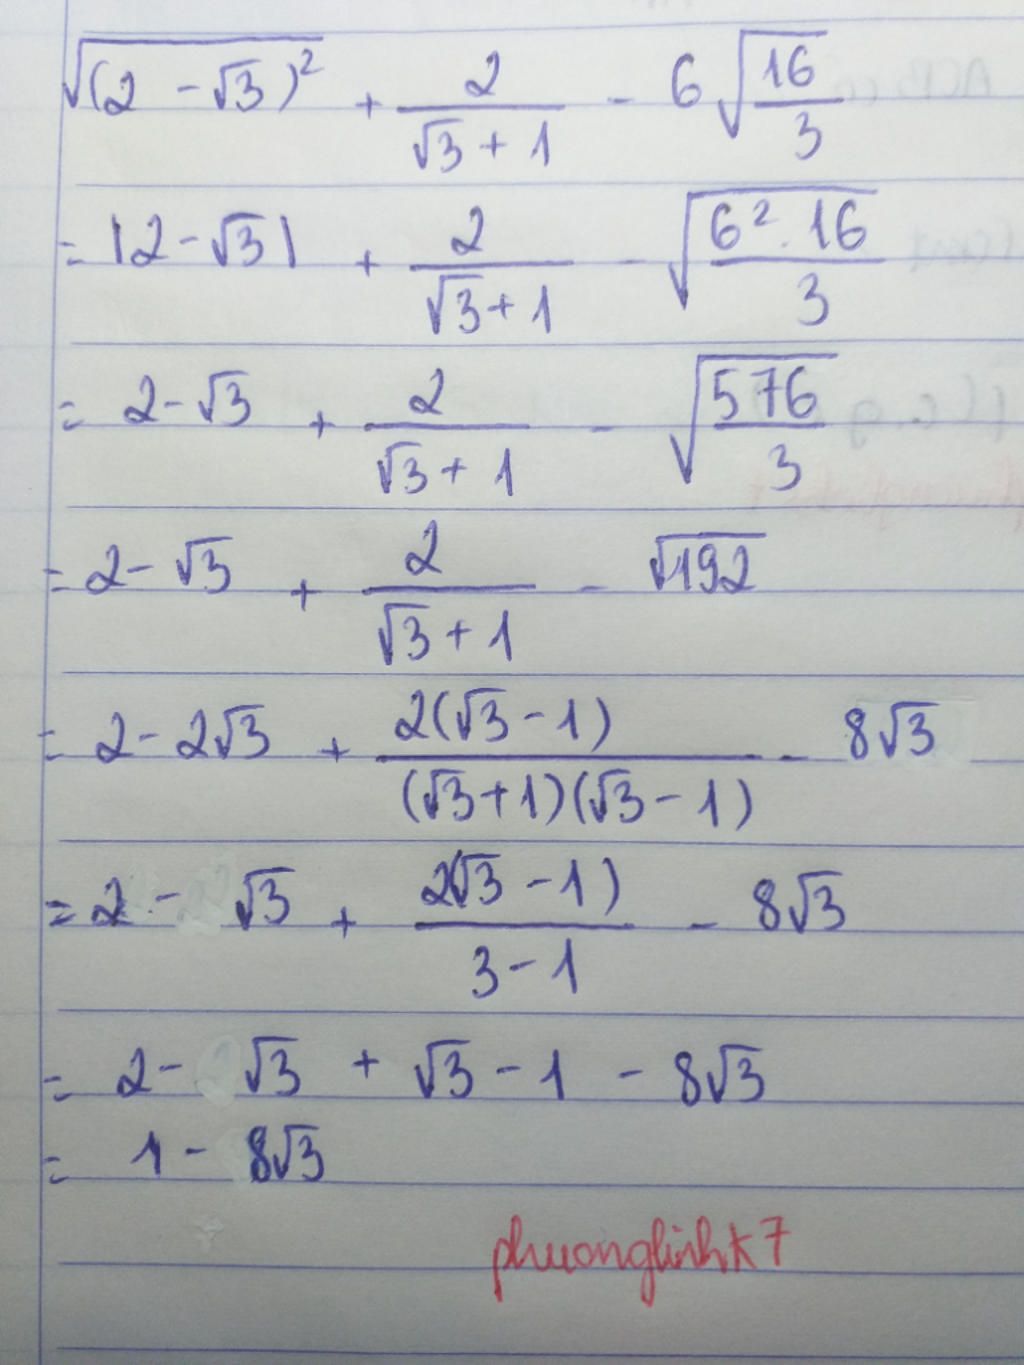 √(2 - √3)² + 2/(√3 + 1) - 6√(16/3)
= |2 - √3| + 2/(√3 + 1) - √(6² . 16/3)
= 2 - √3 + 2/(√3 + 1) - √(576/3)
= 2 - √3 + 2/(√3 + 1) - √192
= 2 - 2√3 + 2(√3 - 1)/(√3 + 1)(√3 - 1) - 8√3
= 2 - √3 + 2(√3 - 1)/(3 - 1) - 8√3
= 2 - √3 + √3 - 1 - 8√3
= 1 - 8√3
phuonglinhk7